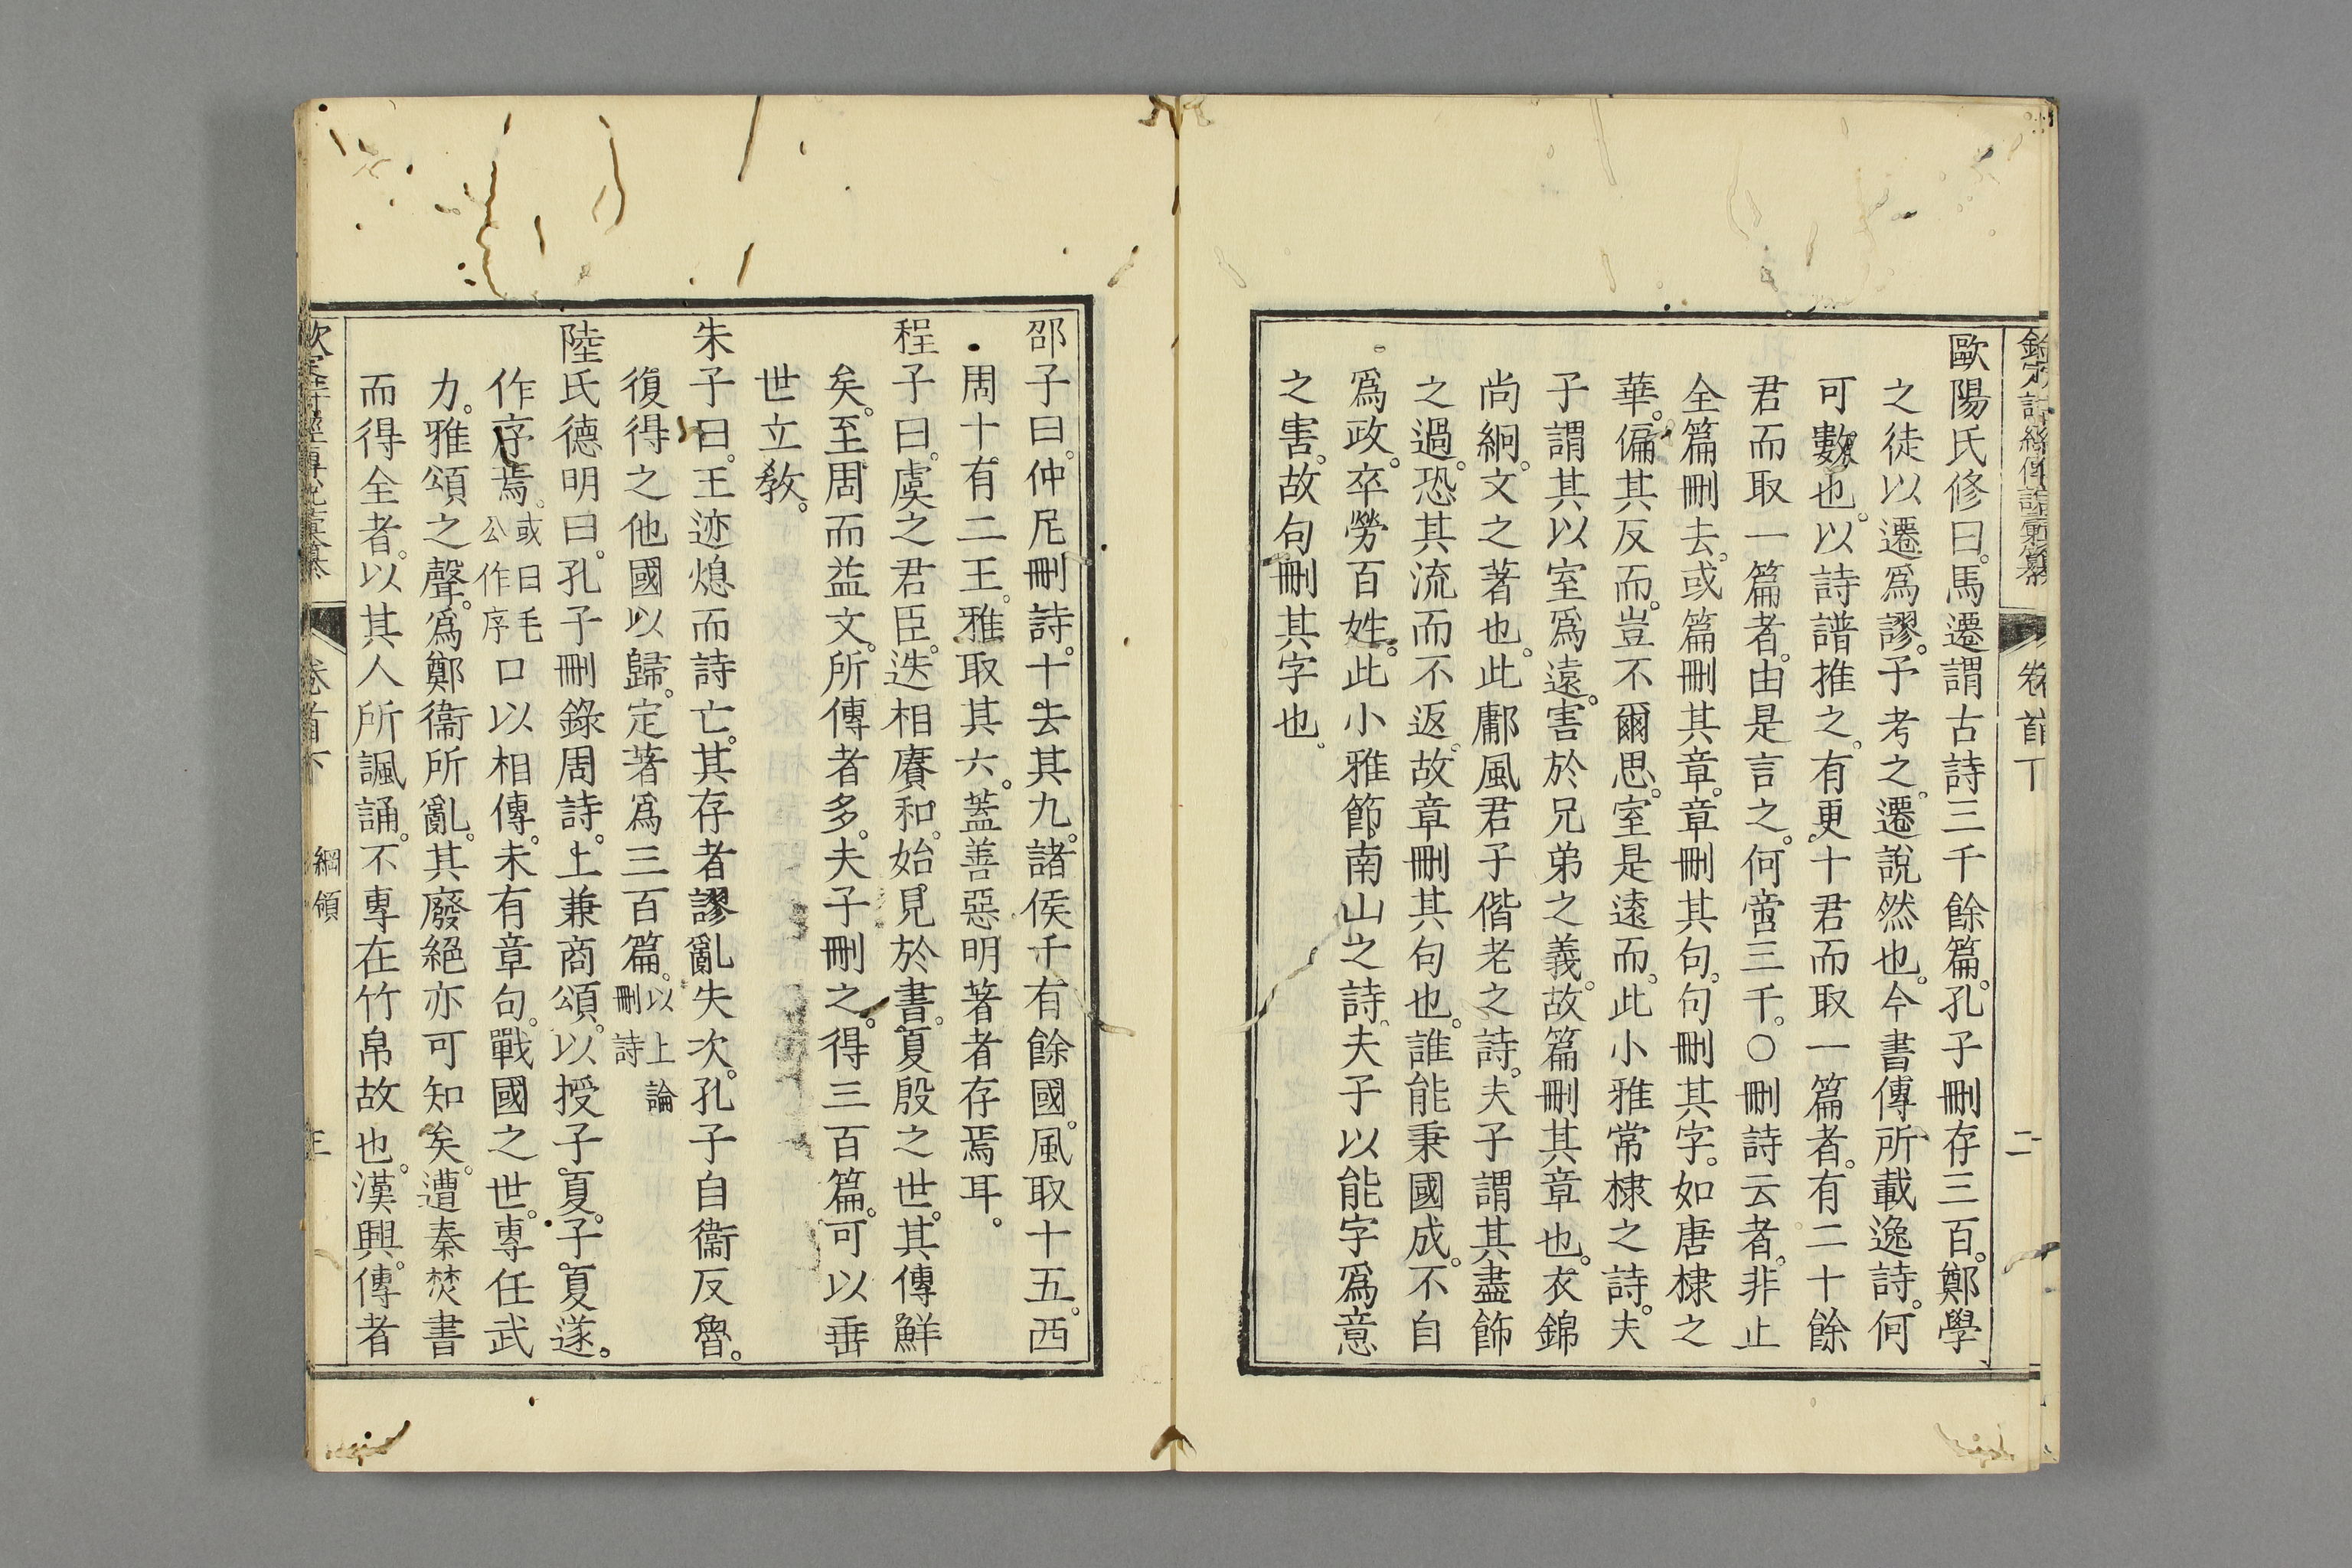 欽定詩經傳說彙纂 卷首下 二
歐陽氏修曰。馬遷謂古詩三千餘篇。孔子刪存三百。鄭學
之徒以遷爲謬。予考之。遷說然也。今書傳所載逸詩。何
可數也。以詩譜推之。有更十君而取一篇者。有二十餘
君而取一篇者。由是言之。何啻三千。○刪詩云者。非止
全篇刪去。或篇刪其章。章刪其句。句刪其字。如唐棣之
華。偏其反而。豈不爾思。室是遠而。此小雅常棣之詩。夫
子謂其以室爲遠。害於兄弟之義。故篇刪其章也。衣錦
尚絅。文之著也。此鄘風君子偕老之詩。夫子謂其盡飾
之過。恐其流而不返。故章刪其句也。誰能秉國成。不自
爲政。卒勞百姓。此小雅節南山之詩。夫子以能字爲意
之害。故句刪其字也。
邵子曰。仲尼刪詩。十去其九。諸侯千有餘國。風取十五。西
周十有二王。雅取其六。蓋善惡明著者存焉耳。
程子曰。虞之君臣。迭相賡和。始見於書。夏殷之世。其傳鮮
矣。至周而益文。所傳者多。夫子刪之。得三百篇。可以垂
世立敎。
朱子曰。王迹熄而詩亡。其存者謬亂失次。孔子自衞反魯。
復得之他國以歸。定著爲三百篇。以上論刪詩
陸氏德明曰。孔子刪錄周詩。上兼商頌。以授子夏。子夏遂。
作序焉。或曰毛公作序口以相傳。未有章句。戰國之世。專任武
力。雅頌之聲。爲鄭衞所亂。其廢絕亦可知矣。遭秦焚書
而得全者。以其人所諷誦。不專在竹帛故也。漢興。傳者
欽定詩經傳說彙纂 卷首下 綱領 三